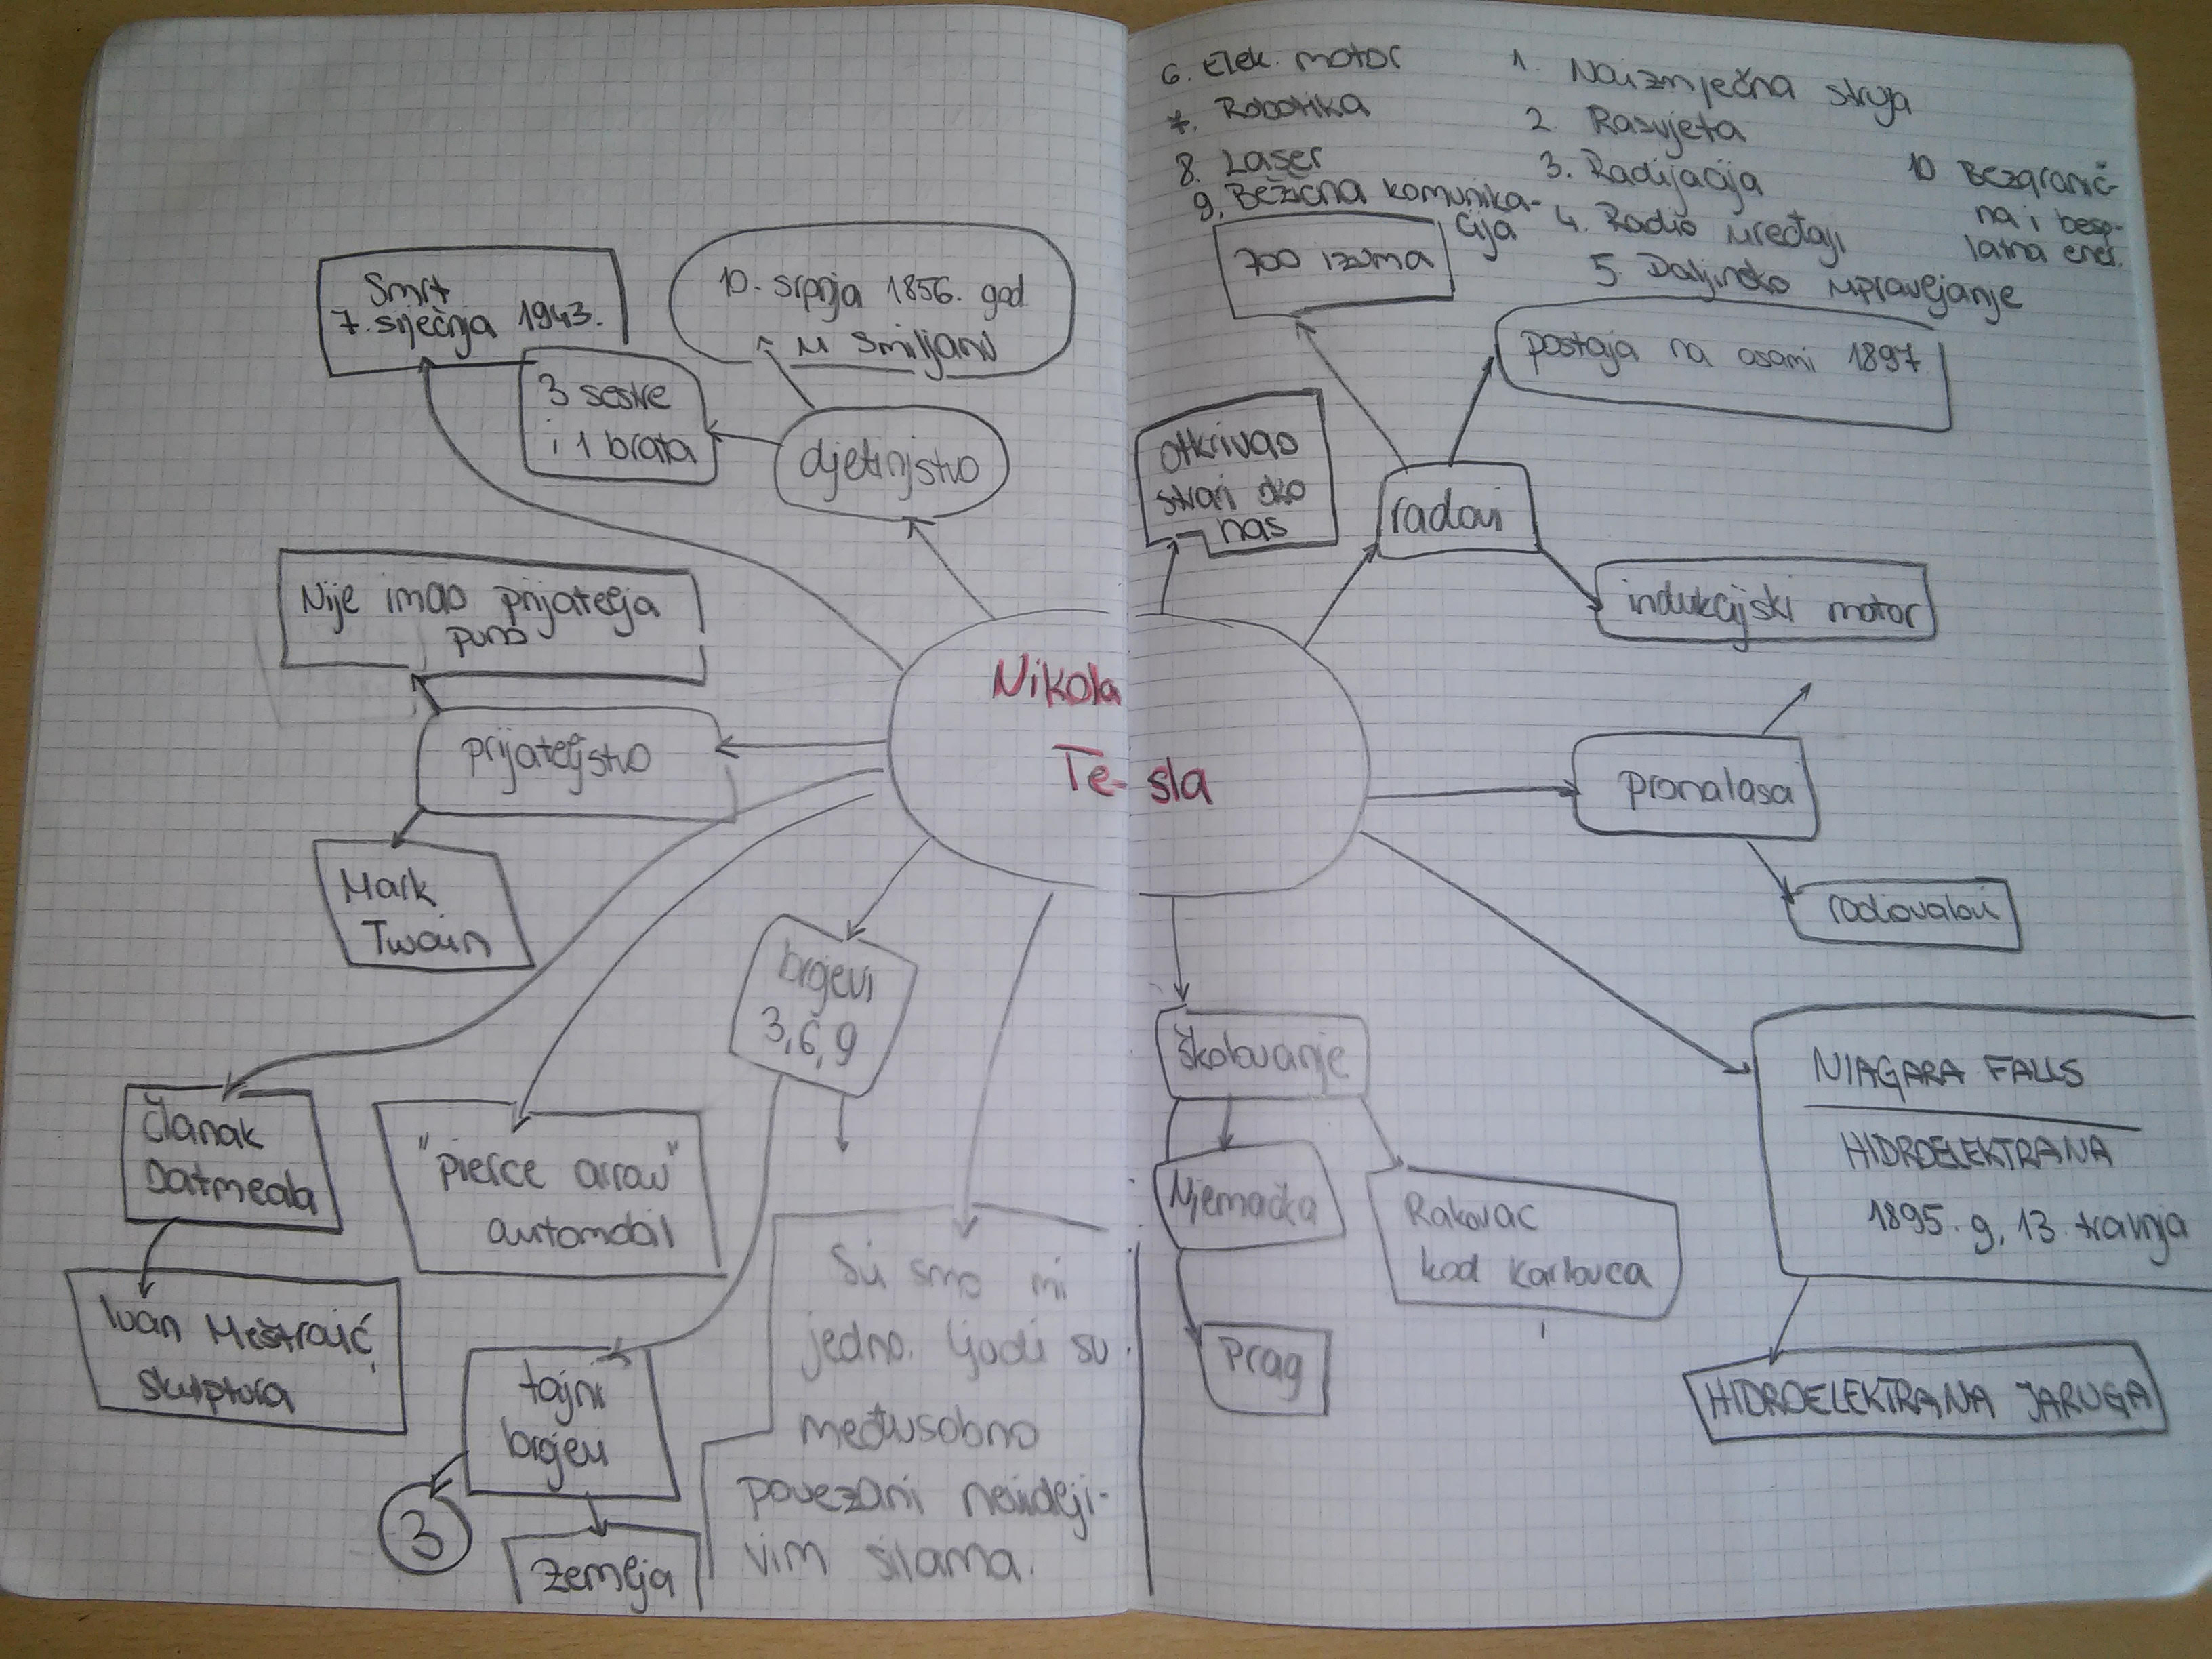 Smrt
7. siječnja 1943.
10. srpnja 1856. god
u Smiljanu
3 sestre
i 1 brata
djetinjstvo
Nije imao prijatelja
puno
prijateljstvo
Mark
Twain
Nikola
Te-sla
brojevi
3,6,9
članak
Oatmeala
Ivan Meštrović,
skulptura
"pierce arrow"
automobil
tajni
brojevi
3
Zemlja
Svi smo mi
jedno. Ljudi su
međusobno
povezani nevidlji-
vim silama.
6. Elek. motor
7. Robotika
8. Laser
9. Bežična komunika-
cija
1. Naizmječna struja
2. Rasvjeta
3. Radijacija
4. Radio uređaji
5. Daljinsko upravljanje
10 Bezgranič-
na i besp-
latna ener.
700 izuma
postaja na osami 1897
otkrivao
stvari oko
nas
radovi
indukcijski motor
pronalasa
radiovalovi
školovanje
Njemačka
Rakovac
kod Karlovca
Prag
NIAGARA FALLS
HIDROELEKTRANA
1895. g, 13. travnja
HIDROELEKTRANA JARUGA